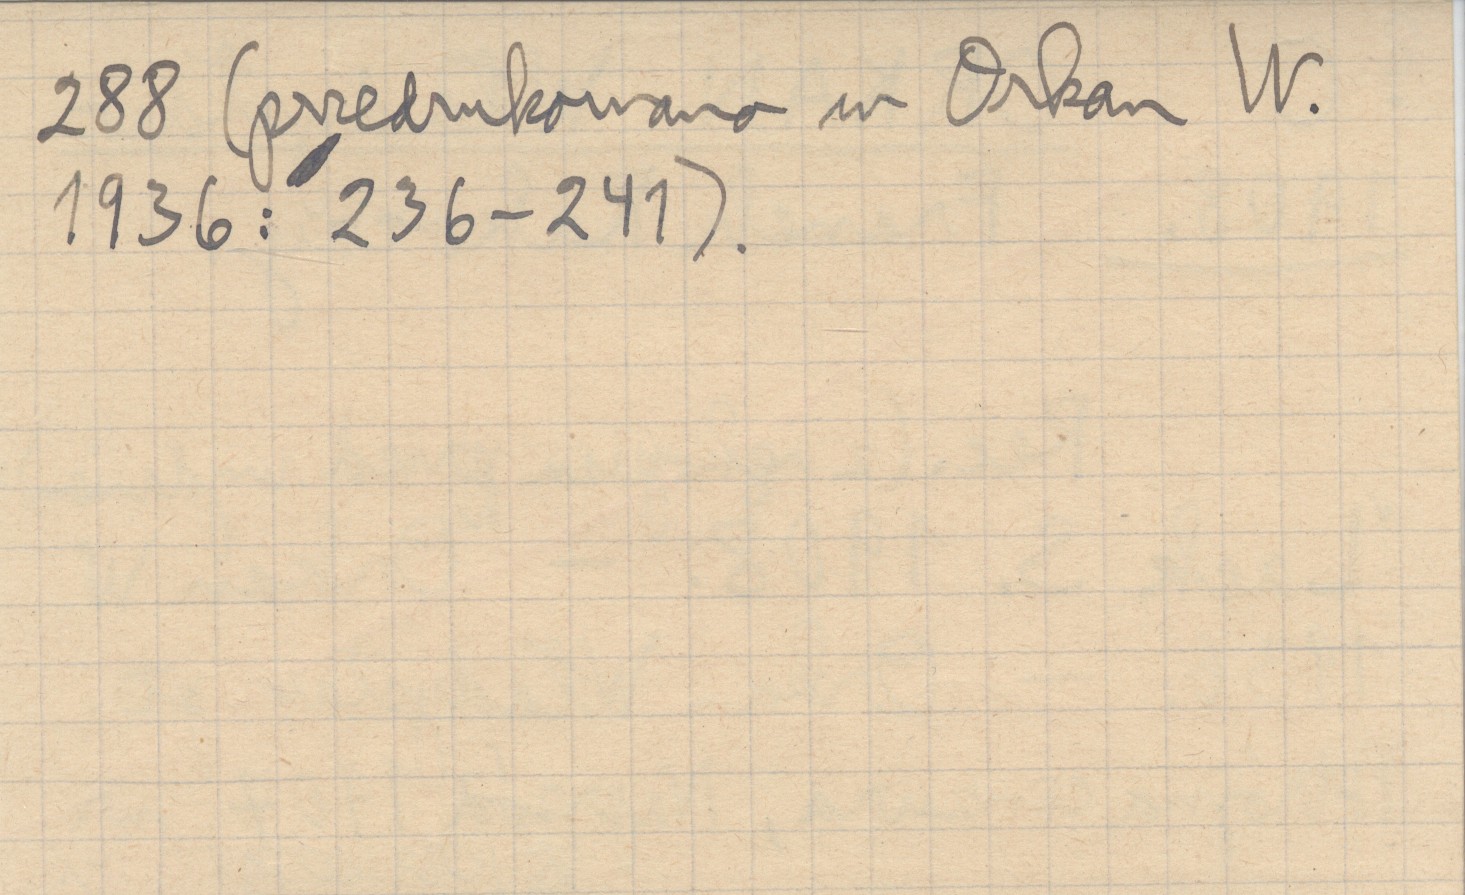 288 (przedrukowano w Orkan W.
1936: 236-241).